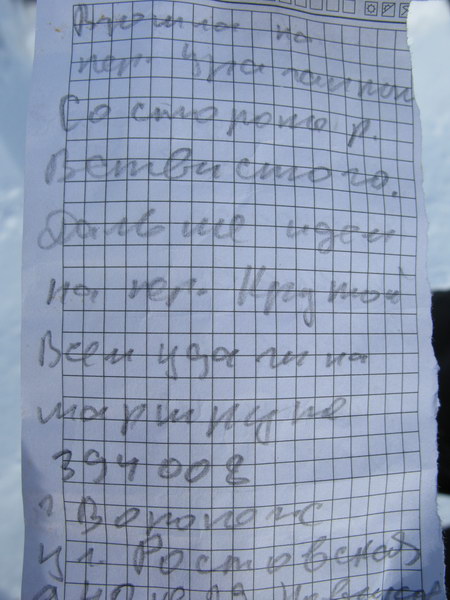 Вышли на
пер.
Со стороны р.
Ветвистого.
Дальше идем
на пер. Крутой
Всем удачи на
маршруте
394008
г Воронеж
ул. Ростовская